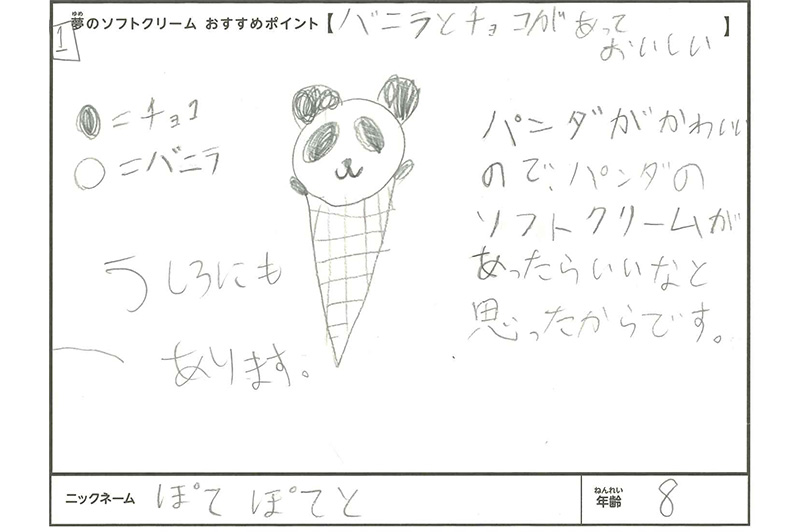 1
夢のソフトクリーム おすすめポイント【バニラとチョコがあって
おいしい】
ゆめ
=チョコ
=バニラ
うしろにも
あります。
パンダがかわいい
ので、パンダの
ソフトクリームが
あったらいいなと
思ったからです。
ニックネーム ぽてぽてと
ねんれい
年齢 8